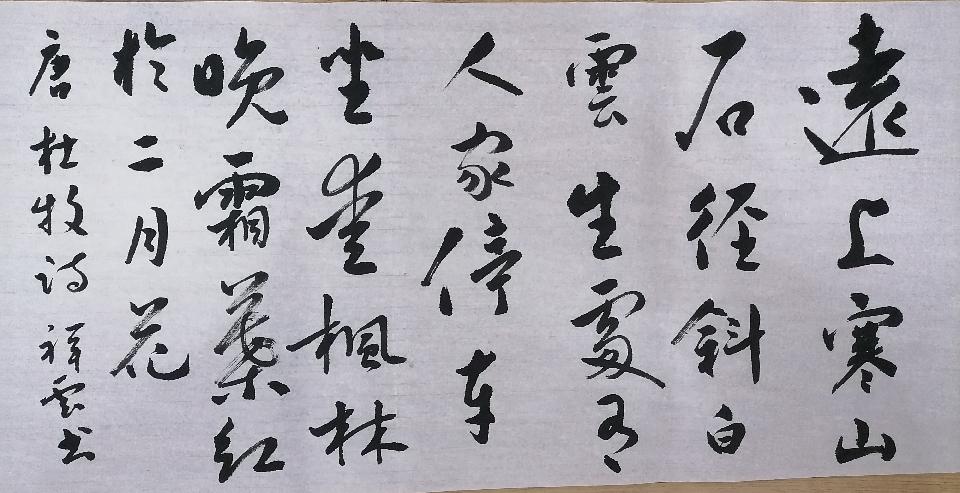 遠上寒山
石径斜白
雲生處有
人家停车
坐愛楓林
晚霜葉红
於二月花
唐杜牧诗祥雲书